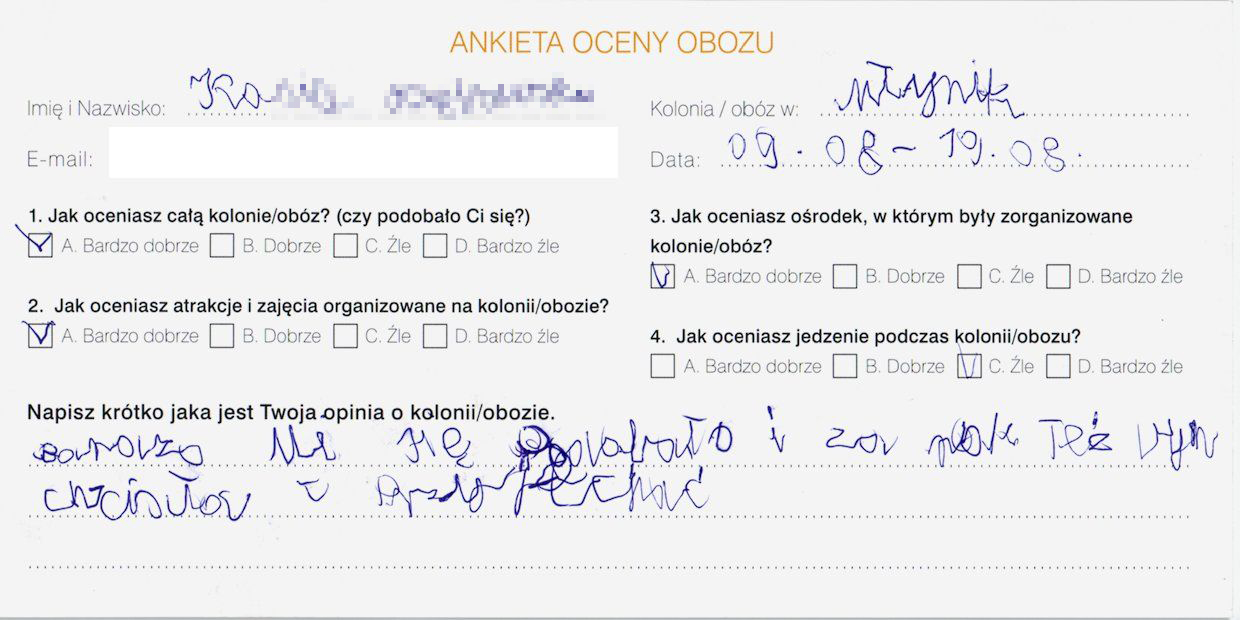 ANKIETA OCENY OBOZU
Imię i Nazwisko: Ka
Kolonia / obóz w: Młynik
E-mail:
Data: 09.08-19.08.
1. Jak oceniasz całą kolonie/obóz? (czy podobało Ci się?)
A. Bardzo dobrze B. Dobrze C. Źle D. Bardzo źle
2. Jak oceniasz atrakcje i zajęcia organizowane na kolonii/obozie?
A. Bardzo dobrze B. Dobrze C. Źle D. Bardzo źle
3. Jak oceniasz ośrodek, w którym były zorganizowane
kolonie/obóz?
A. Bardzo dobrze B. Dobrze C. Źle D. Bardzo źle
4. Jak oceniasz jedzenie podczas kolonii/obozu?
A. Bardzo dobrze B. Dobrze C. Źle D. Bardzo źle
Napisz krótko jaka jest Twoja opinia o kolonii/obozie.
Mi się i za rok Też bym